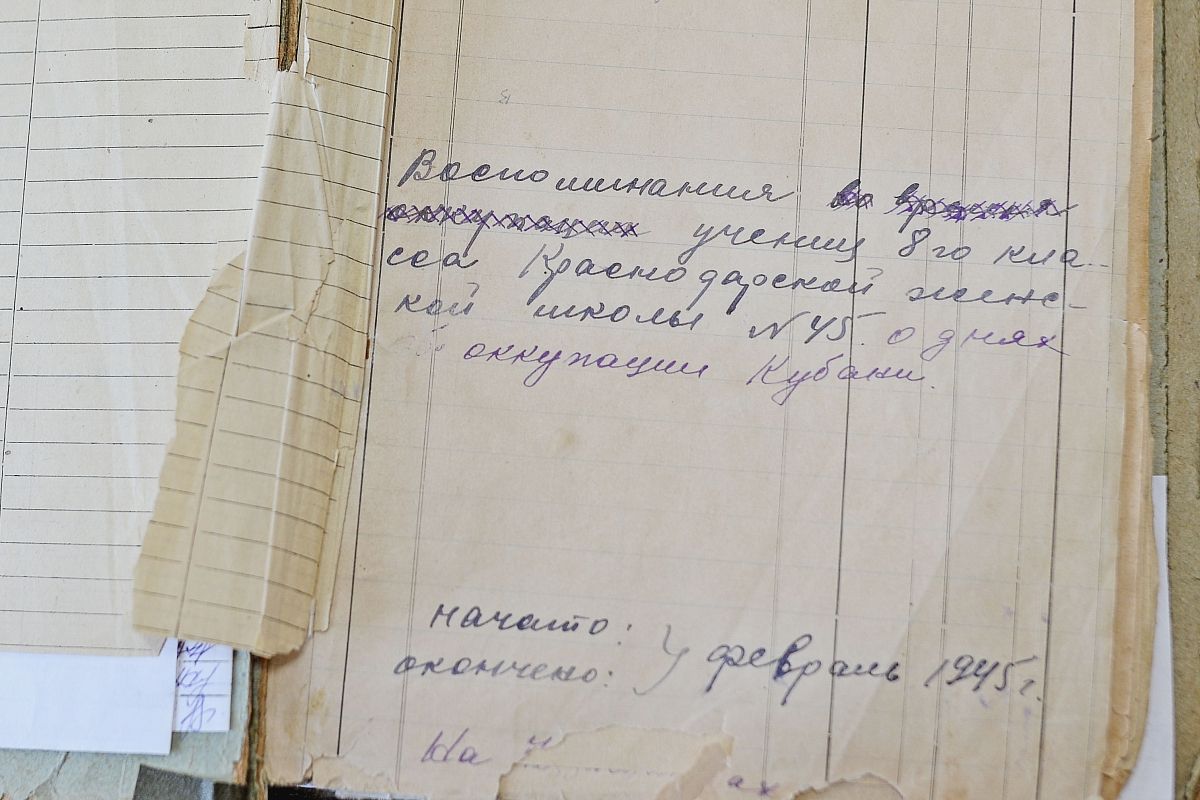 Воспоминания во время
оккупации учениц 8го кла-
сса Краснодарской женс-
кой школы N 45. о днях
оккупации Кубани.
начато:
окончено: } февраль 1945 г.
На
ах